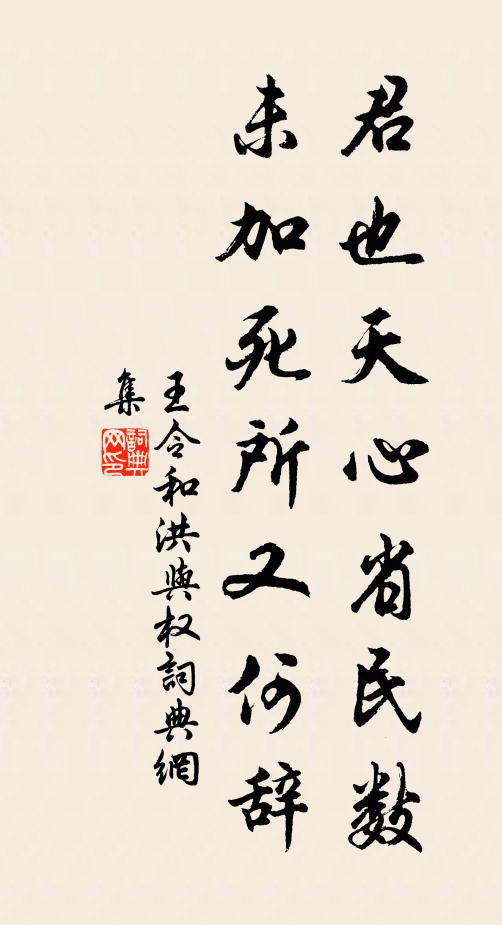 君也天心省民数
未加死所又何辞
王令和洪與权詞典網
集
詞典網印